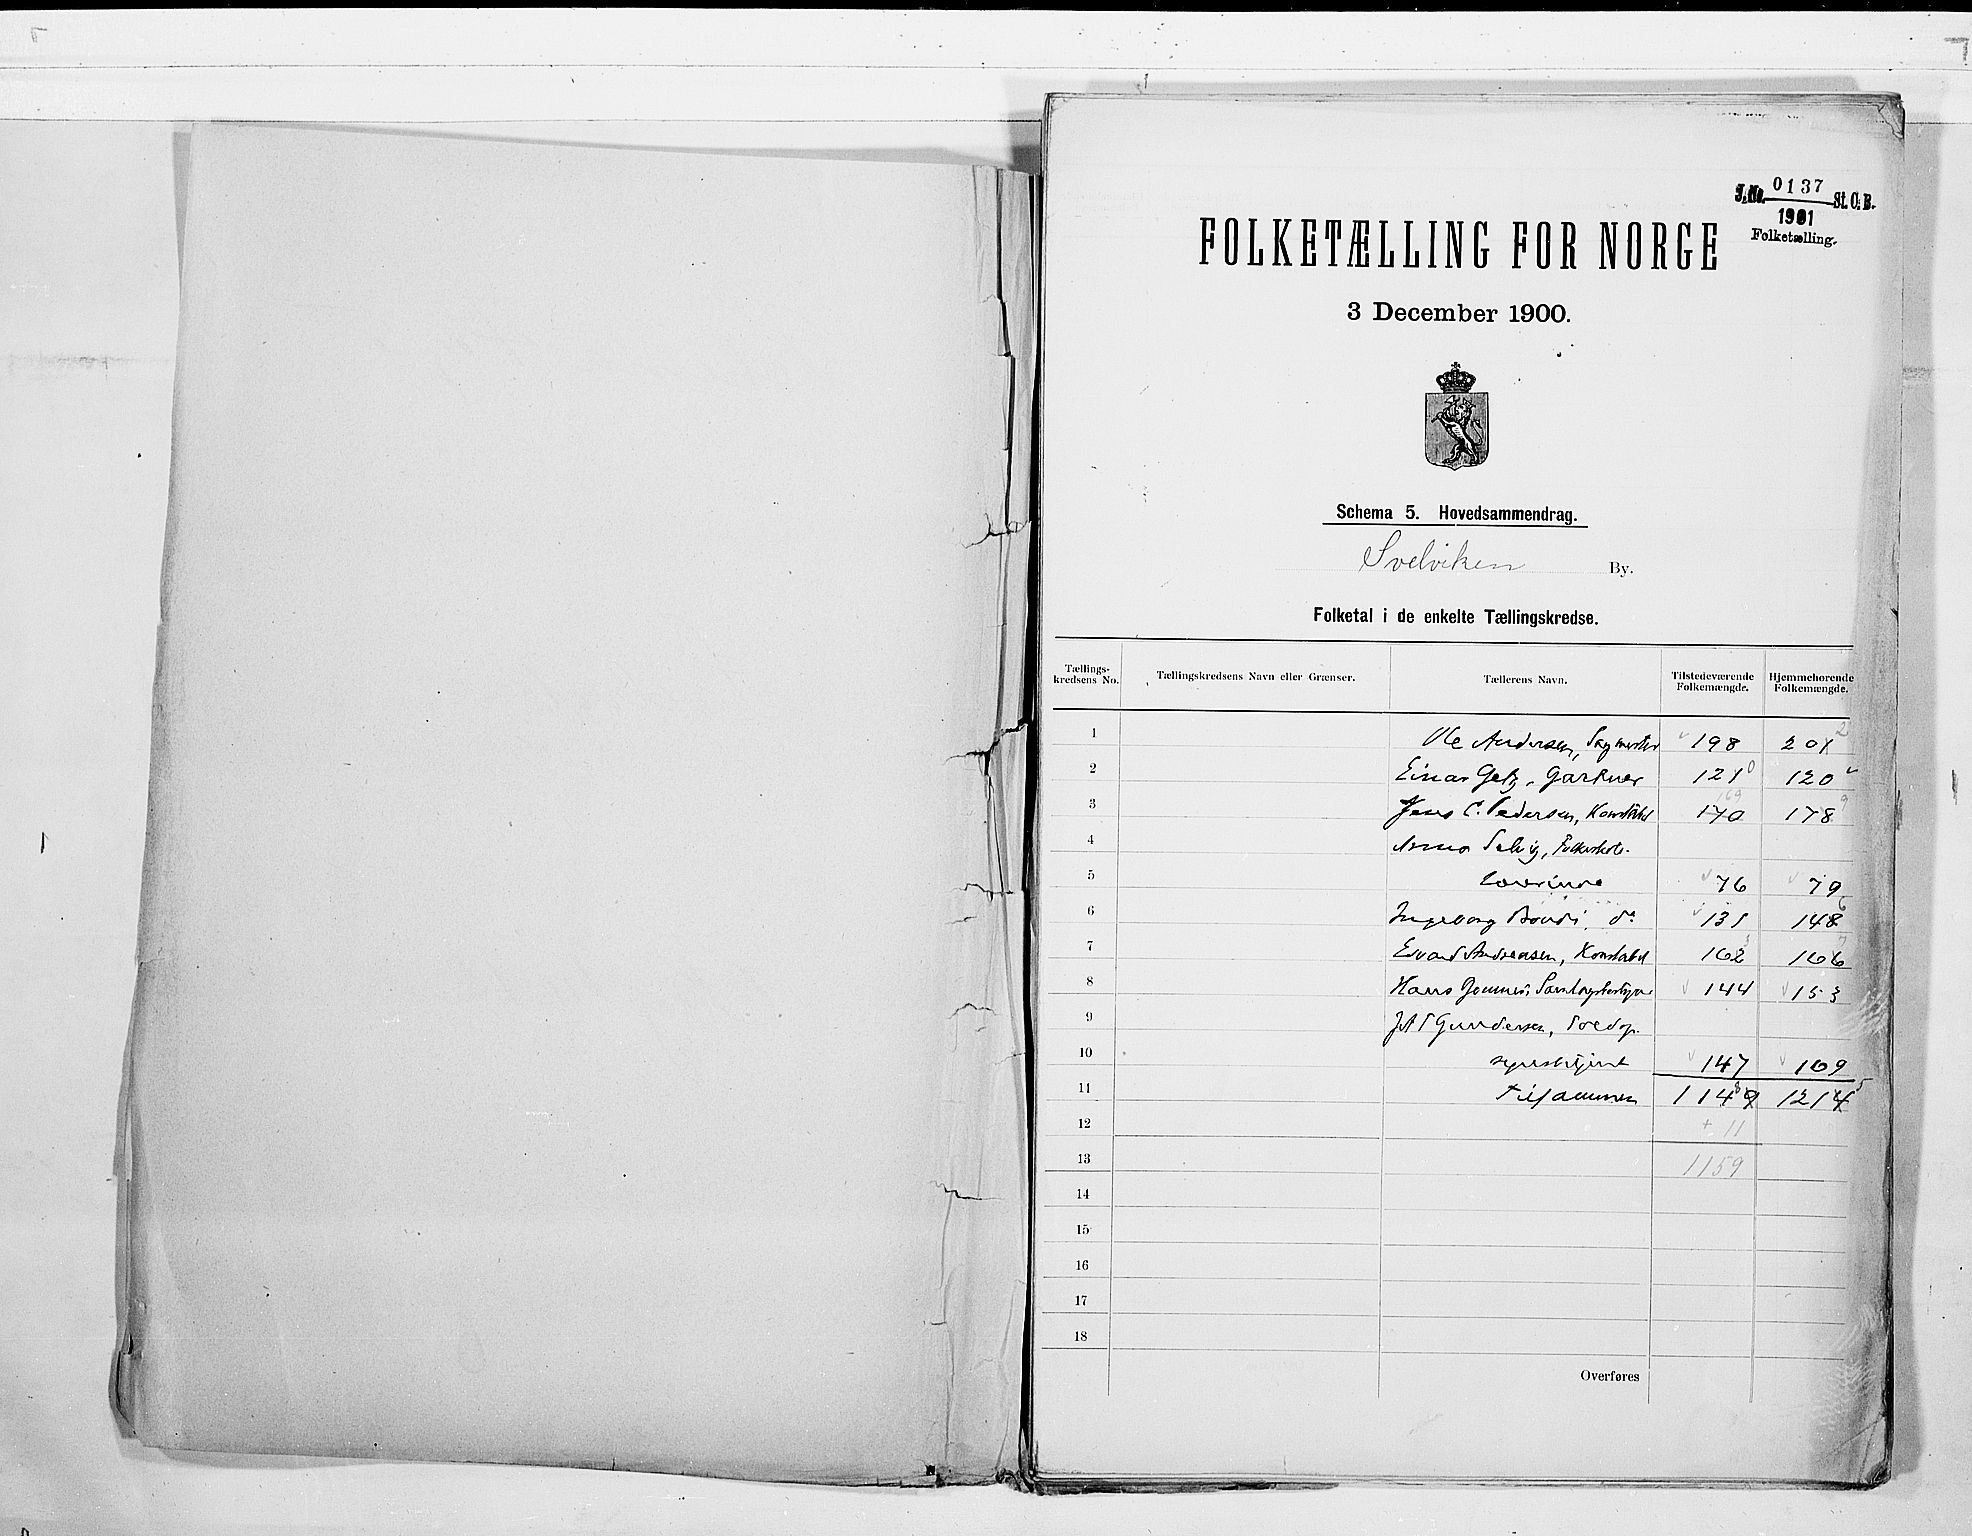 J.No. 0137 St. C. B.
1901
Folketælling.
FOLKETÆLLING FOR NORGE
3 December 1900.
Schema 5. Hovedsammendrag.
Svelviken By.
Folketal i de enkelte Tællingskredse.
Tællings-kredsens No. Tællingskredsens Navn eller Grænser. Tællerens Navn. Tilstedeværende Folkemængde. Hjemmehørende Folkemængde.
1 Ole Andersen, 198 201 2
2 Einar Getz, Gartner 121 0 120
3 Jens C. Pedersen, Konstabel 170 169 178 9
4 Anna Folkeskole-
5 lærerinde 76 79
6 Ingeborg do 131 148 6
7 Edvard Andreasen, Konstabel 162 3 166 7
8 Hans 144 153
9 Gundersen,
10 147 169
11 Tilsammen 1149 8 1214 5
12 + 11
13 1159
14
15
16
17
18
Overføres